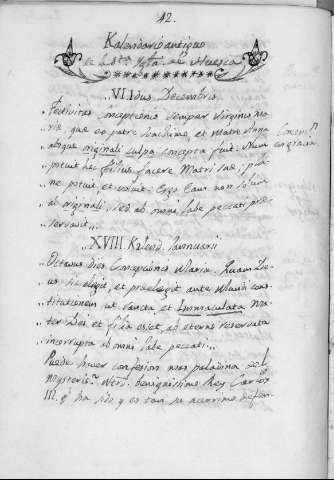 42.
Kalendario antiguo
de la Sta. Igla. de Huesca
VI. Idus Decembris.
Festivitas Conceptionis semper Virginis Ma-
rie que ex patre Joachimo, et Matre Anna
absque originali culpa concepta fuit. Num
potuit hec filius facere Matri sue, pla-
ne potuit, et voluit. Ergo eam non solum
ab originali, sed ab omni labe peccati pre-
servavit.
XVIII Kalend. Januarii
Octavus dies Conceptionis Marie. Quam De-
us elegit, et preelegit ante Mundi cons-
titutionem ut Sancta et Immaculata Ma-
ter Dei et filia esset, ab eterno reservata
incorrupta ab omni labe peccati.
Puede haver confesion mas paladina del
Mysterio? Ntro. benignissimo Rey Carlos
III. q. ha sido y es tan su acerrimo defen-